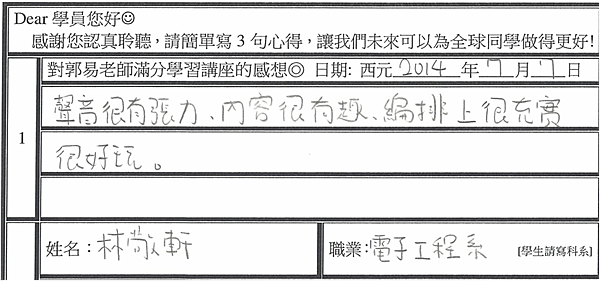 Dear 學員您好☺
感謝您認真聆聽，請簡單寫 3 句心得，讓我們未來可以為全球同學做得更好!
1
對郭易老師滿分學習講座的感想◎ 日期: 西元 2014 年 7 月 7 日
聲音很有張力、內容很有趣、編排上很充實
很好玩。
姓名：林敬軒 職業:電子工程系 [學生請寫科系]